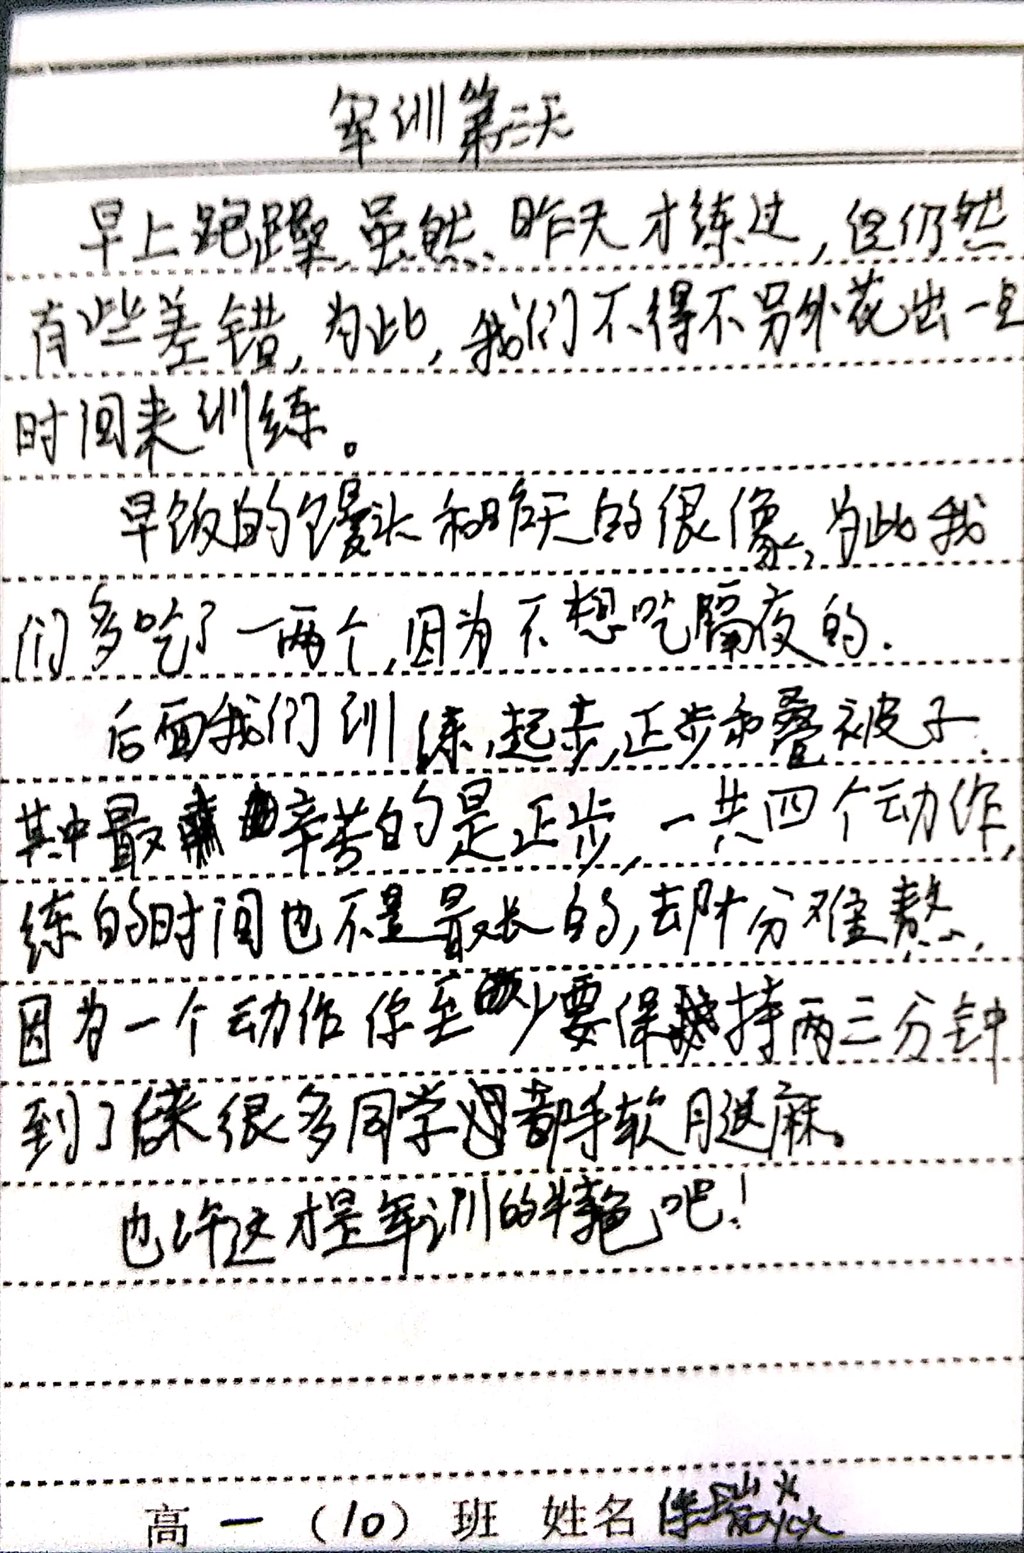 军训第三天
早上跑躁,虽然昨天才练过,但仍然
有些差错,为此,我们不得不另外花出一点
时间来训练。
早饭的馒头和昨天的很像,为此我
们多吃了一两个,因为不想吃隔夜的.
后面我们训练,起步,正步和叠被子.
其中最辛苦的是正步,一共四个动作,
练的时间也不是最长的,却十分难熬.
因为一个动作你至少要保持两三分钟
到了后来很多同学都手软腿麻。
也许这才是军训的特色吧!
高一(10)班 姓名